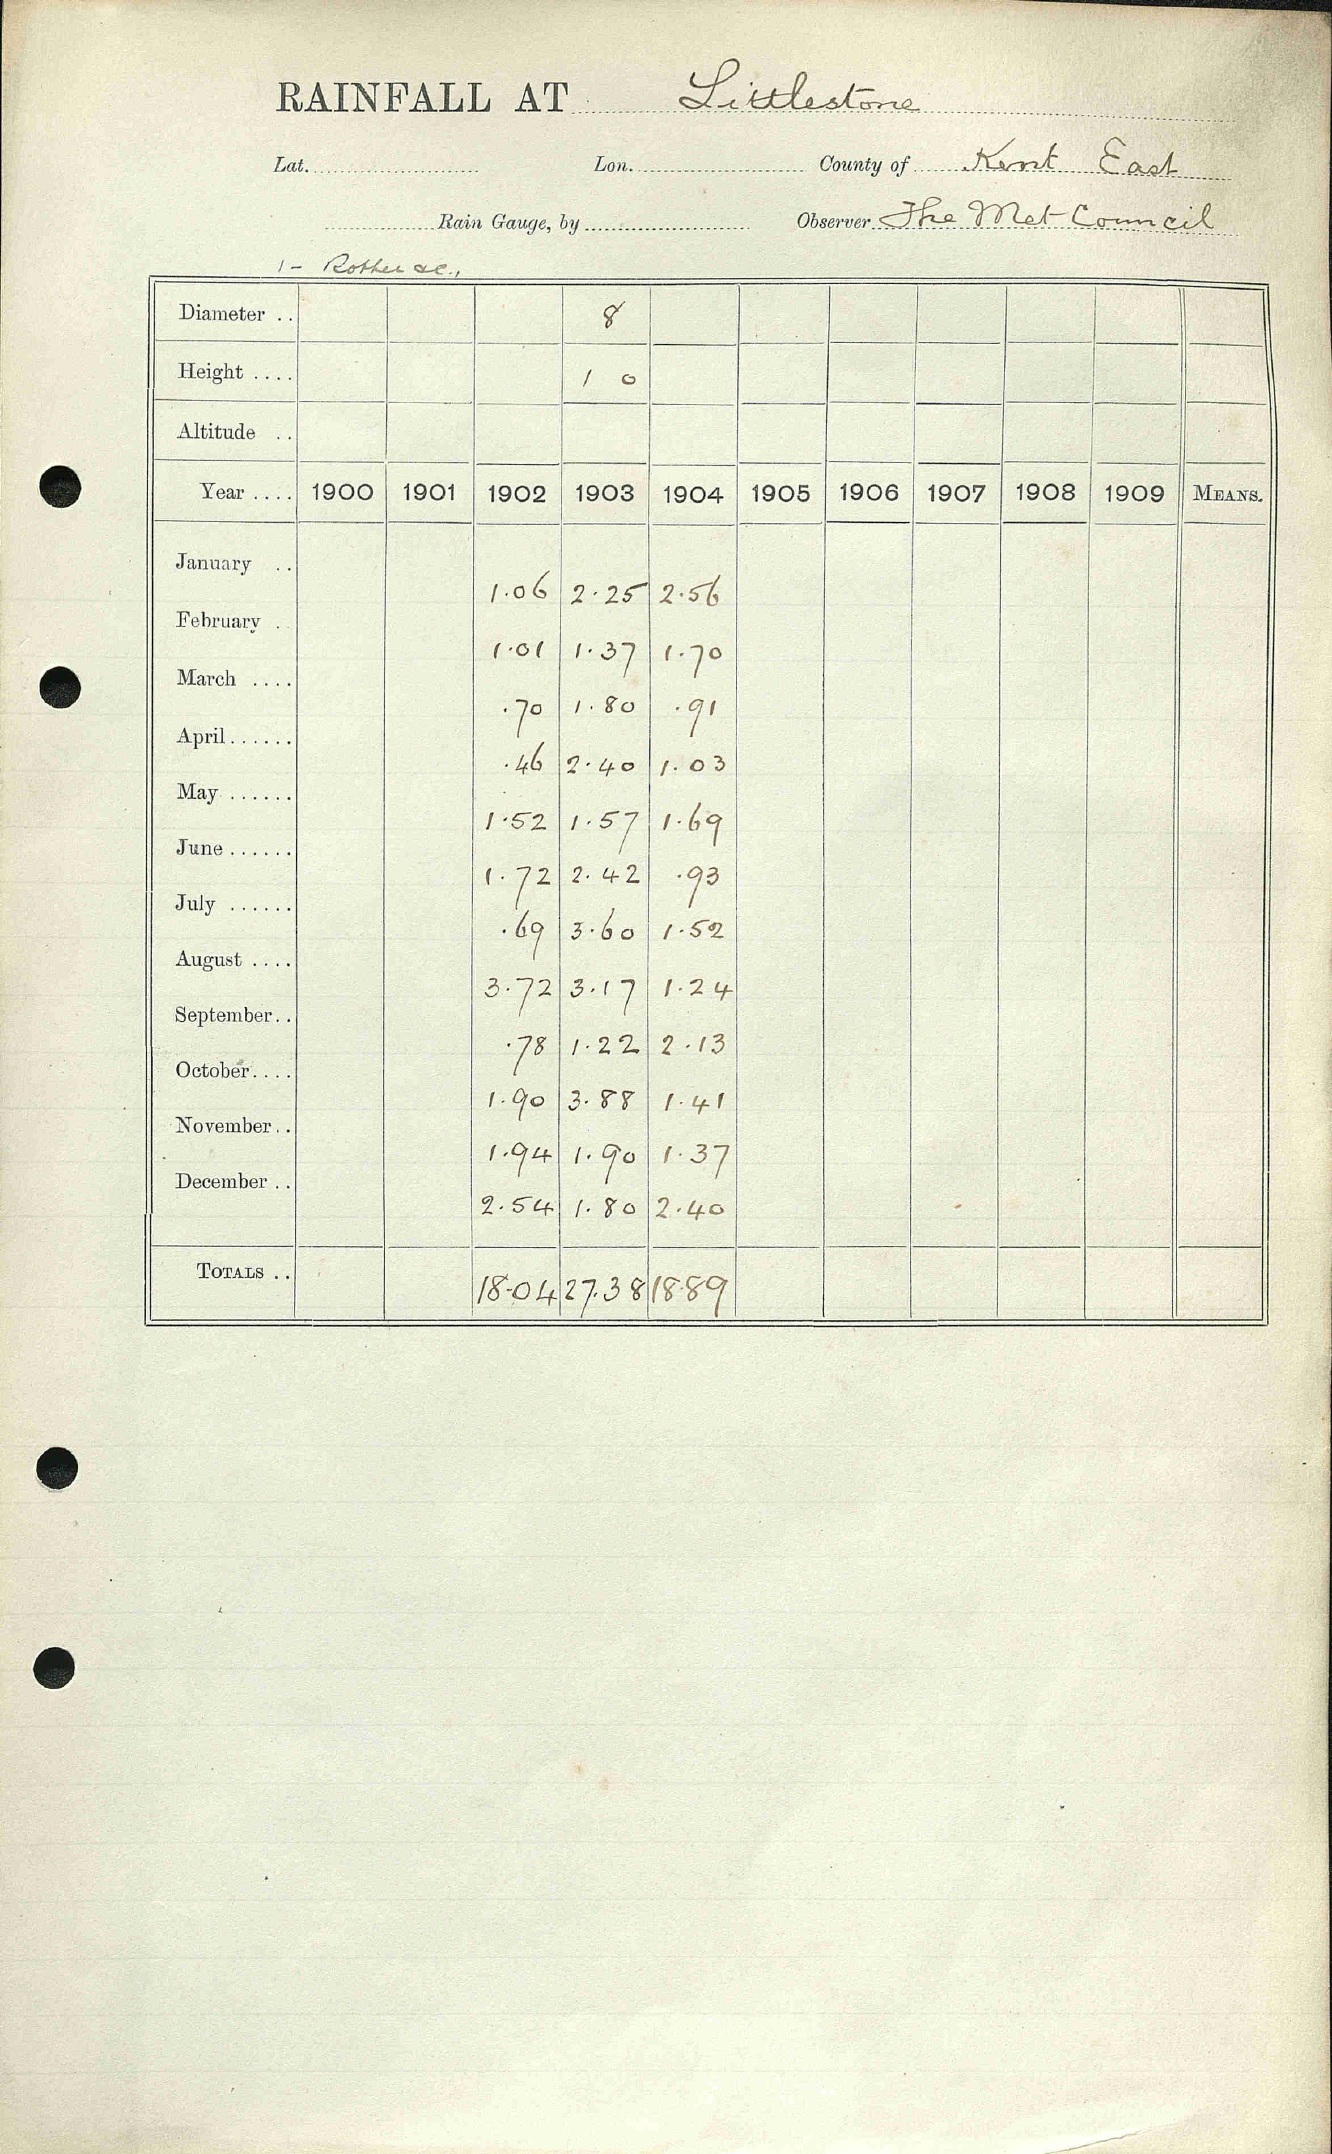 RAINFALL AT Littlestone
Lat. Lon. County of Kent East
Rain Gauge, by Observer The Met Council
1 - Rother &c.,
Diameter .. 8
Height .... 1 0
Altitude ..
Year .... 1900 1901 1902 1903 1904 1905 1906 1907 1908 1909 MEANS.
January ..
1.06 2.25 2.56
February .
1.01 1.37 1.70
March ....
.70 1.80 .91
April......
.46 2.40 1.03
May ......
1.52 1.57 1.69
June ......
1.72 2.42 .93
July ......
.69 3.60 1.52
August ....
3.72 3.17 1.24
September..
.78 1.22 2.13
October....
1.90 3.88 1.41
November..
1.94 1.90 1.37
December ..
2.54 1.80 2.40
TOTALS ..
18.04 27.38 18.89